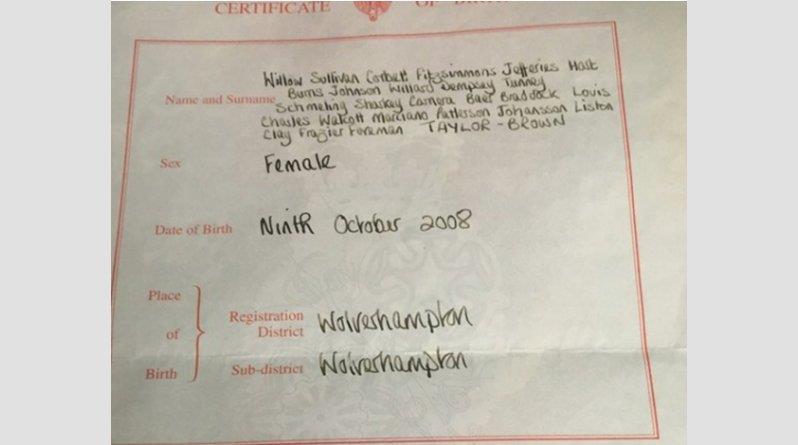 CERTIFICATE OF BIRTH
Name and Surname
Willow Sullivan Corbett Fitzsimmons Jefferies Hart
Burns Johnson Willard Dempsey Tunney
Schmeling Sharkey Carnera Baer Braddock Louis
Charles Walcott Marciano Patterson Johansson Liston
Clay Frazier Foreman TAYLOR-BROWN
Sex Female
Date of Birth Ninth October 2008
Place of Birth
Registration District Wolverhampton
Sub-district Wolverhampton